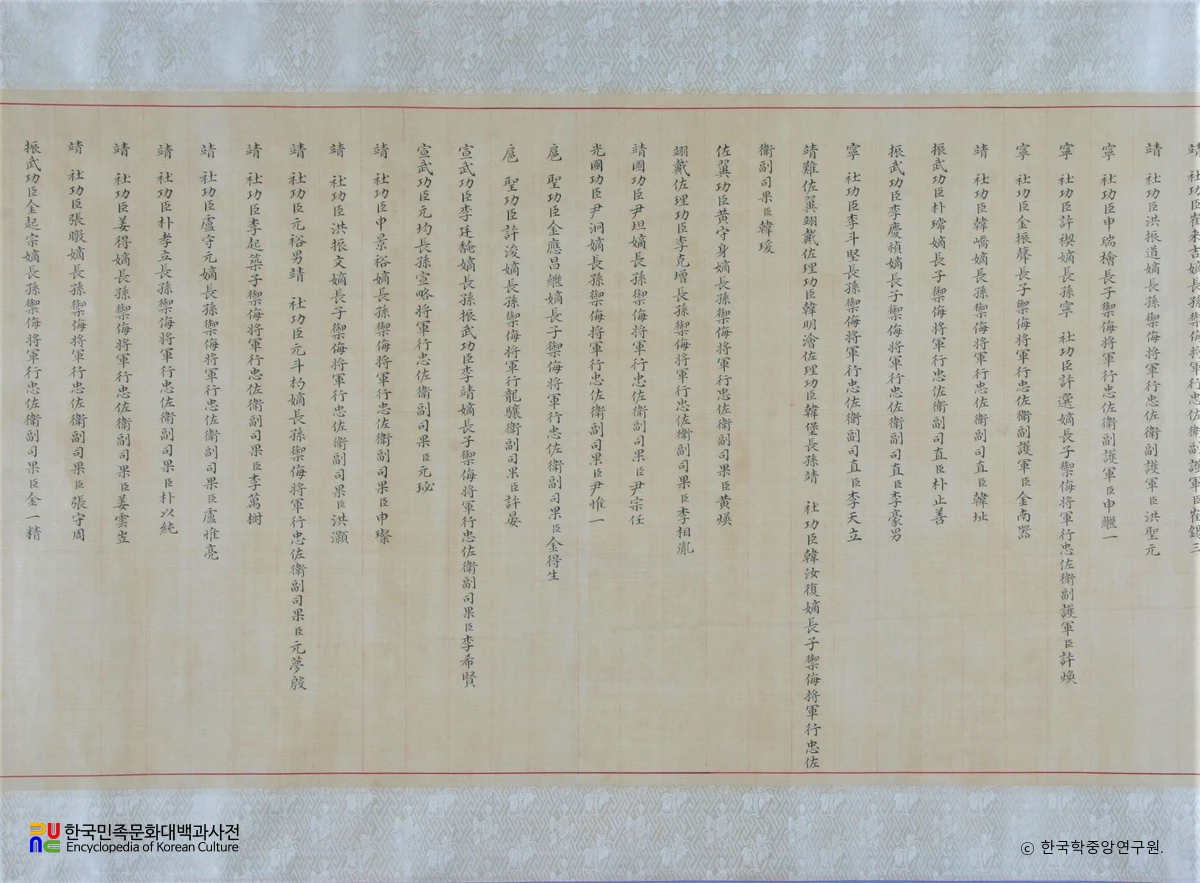 靖 社功臣洪振道嫡長孫禦侮將軍行忠佐衛副護軍臣洪聖元
寧 社功臣申瑞檜長子禦侮將軍行忠佐衛副護軍臣申繼一
寧 社功臣許禊嫡長孫寧 社功臣許選嫡長子禦侮將軍行忠佐衛副護軍臣許煥
寧 社功臣金振聲長子禦侮將軍行忠佐衛副護軍臣金南器
靖 社功臣韓嶠嫡長孫禦侮將軍行忠佐衛副司直臣韓址
振武功臣朴瓀嫡長子禦侮將軍行忠佐衛副司直臣朴止善
振武功臣李慶禎嫡長子禦侮將軍行忠佐衛副司直臣李豪男
寧 社功臣李斗堅長孫禦侮將軍行忠佐衛副司直臣李天立
靖難佐翼翊戴佐理功臣韓明澮佐理功臣韓堡長孫靖 社功臣韓汝復嫡長子禦侮將軍行忠佐
衛副司果臣韓瑗
佐翼功臣黃守身嫡長孫禦侮將軍行忠佐衛副司果臣黃煐
翊戴佐理功臣李克增長孫禦侮將軍行忠佐衛副司果臣李相胤
靖國功臣尹坦嫡長孫禦侮將軍行忠佐衛副司果臣尹宗任
光國功臣尹泂嫡長孫禦侮將軍行忠佐衛副司果臣尹惟一
扈 聖功臣金應昌繼嫡長子禦侮將軍行忠佐衛副司果臣金得生
扈 聖功臣許浚嫡長孫禦侮將軍行龍驤衛副司果臣許晏
宣武功臣李廷馣嫡長孫振武功臣李靖嫡長子禦侮將軍行忠佐衛副司果臣李希賢
宣武功臣元均長孫宣略將軍行忠佐衛副司果臣元珌
靖 社功臣申景裕嫡長孫禦侮將軍行忠佐衛副司果臣申璨
靖 社功臣洪振文嫡長子禦侮將軍行忠佐衛副司果臣洪灝
靖 社功臣元裕男靖 社功臣元斗杓嫡長孫禦侮將軍行忠佐衛副司果臣元夢殷
靖 社功臣李起築子禦侮將軍行忠佐衛副司果臣李萬樹
靖 社功臣盧守元嫡長孫禦侮將軍行忠佐衛副司果臣盧惟亮
靖 社功臣朴孝立長孫禦侮將軍行忠佐衛副司果臣朴以純
靖 社功臣姜得嫡長孫禦侮將軍行忠佐衛副司果臣姜雲岦
靖 社功臣張暾嫡長孫禦侮將軍行忠佐衛副司果臣張守周
振武功臣金起宗嫡長孫禦侮將軍行忠佐衛副司果臣金一精
한국민족문화대백과사전
Encyclopedia of Korean Culture
ⓒ 한국학중앙연구원.